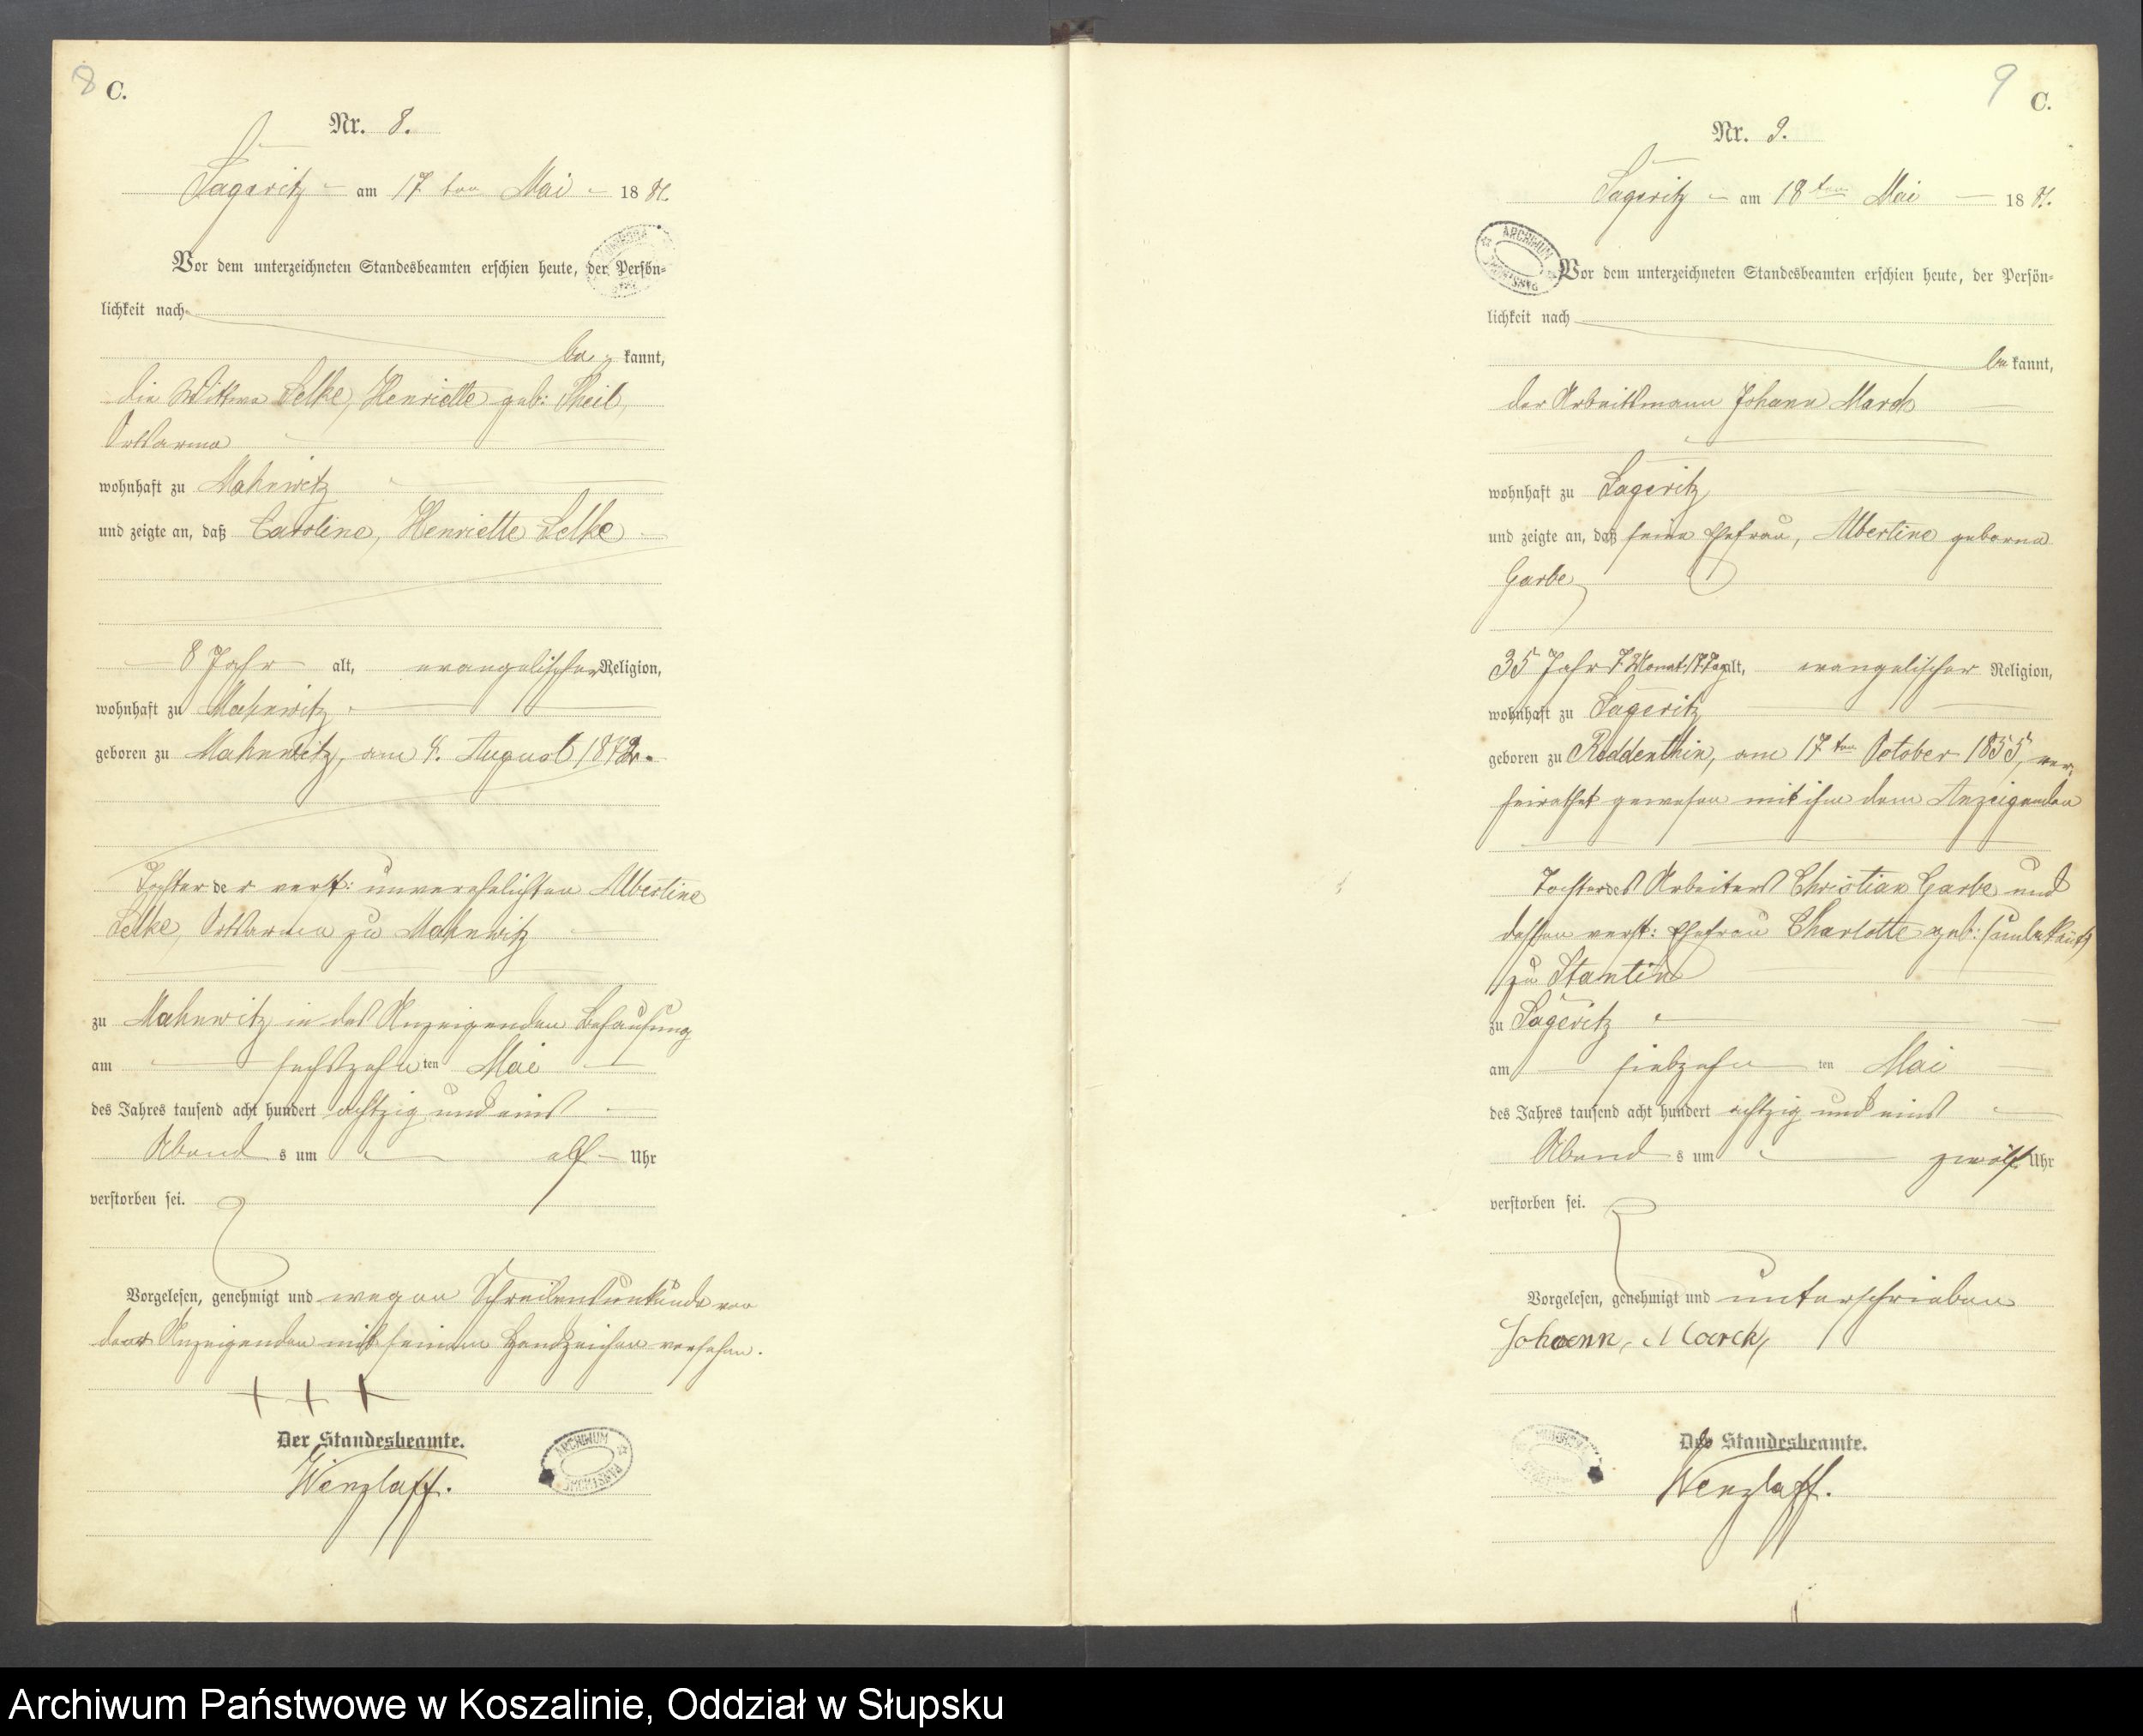 8 C.
Nr. 8.
Sageritz am 17ten Mai 1881.
Vor dem unterzeichneten Standesbeamten erschien heute, der Persön-
lichkeit nach
be kannt,
die Wittwe Selke, Henriette geb: Theil,
Ortsarme
wohnhaft zu Mahnwitz
und zeigte an, daß Caroline, Henriette Selke
8 Jahr alt, evangelischer Religion,
wohnhaft zu Mahnwitz
geboren zu Mahnwitz, am 4. August 1872.
Tochter der verst: unverehelichten Albertine
Selke, Ortsarmen zu Mahnwitz
zu Mahnwitz in des Anzeigenden Behausung
am sechszehnten Mai
des Jahres tausend acht hundert achtzig und eins
Abend s um elf Uhr
verstorben sei.
Vorgelesen, genehmigt und wegen Schreibensunkunde von
dem Anzeigenden mit seinem Handzeichen versehen.
+ + +
Der Standesbeamte.
Wenzlaff.
ARCHIWUM
9 C.
Nr. 9.
Sageritz am 18ten Mai 1881.
ARCHIWUM
Vor dem unterzeichneten Standesbeamten erschien heute, der Persön-
lichkeit nach
be kannt,
der Arbeitsmann Johann March
wohnhaft zu Sageritz
und zeigte an, daß seine Ehefrau, Albertine geborne
Garbe,
35 Jahr 7 Monat 17 Tag alt, evangelischer Religion,
wohnhaft zu Sageritz
geboren zu Reddenthin, am 17ten October 1855, ver-
heirathet gewesen mit ihm dem Anzeigenden
Tochter des Arbeiters Christian Garbe und
dessen verst: Ehefrau Charlotte geb: (unbekannt)
zu Stantin
zu Sageritz
am siebzehn ten Mai
des Jahres tausend acht hundert achtzig und eins
Abend s um zwölf Uhr
verstorben sei.
Vorgelesen, genehmigt und unterschrieben
Johann, Marck,
Der Standesbeamte.
Wenzlaff.
Archiwum Państwowe w Koszalinie, Oddział w Słupsku